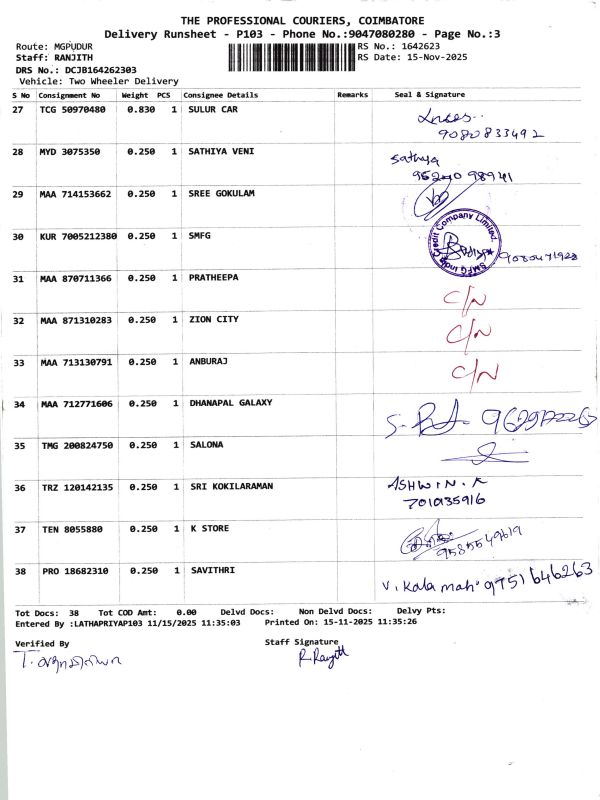 THE PROFESSIONAL COURIERS, COIMBATORE
Delivery Runsheet - P103 - Phone No.:9047080280 - Page No.:3
Route: MGPUDUR
RS No.: 1642623
Staff: RANJITH
RS Date: 15-Nov-2025
DRS No.: DCJB164262303
Vehicle: Two Wheeler Delivery
S No Consignment No Weight PCS Consignee Details Remarks Seal & Signature
27 TCG 50970480 0.830 1 SULUR CAR
9080833492
28 MYD 3075350 0.250 1 SATHIYA VENI
Sathya
95240 98941
29 MAA 714153662 0.250 1 SREE GOKULAM
30 KUR 7005212380 0.250 1 SMFG
SMFG India Credit Company Limited
9080471928
31 MAA 870711366 0.250 1 PRATHEEPA
C/N
32 MAA 871310283 0.250 1 ZION CITY
C/N
33 MAA 713130791 0.250 1 ANBURAJ
C/N
34 MAA 712771606 0.250 1 DHANAPAL GALAXY
35 TMG 200824750 0.250 1 SALONA
36 TRZ 120142135 0.250 1 SRI KOKILARAMAN
ASHWIN.K
701035916
37 TEN 8055880 0.250 1 K STORE
9585549619
38 PRO 18682310 0.250 1 SAVITHRI
V. Kala mah 9751646263
Tot Docs: 38 Tot COD Amt: 0.00 Delvd Docs: Non Delvd Docs: Delvy Pts:
Entered By :LATHAPRIYAP103 11/15/2025 11:35:03 Printed On: 15-11-2025 11:35:26
Verified By
Staff Signature
R. Ranjith